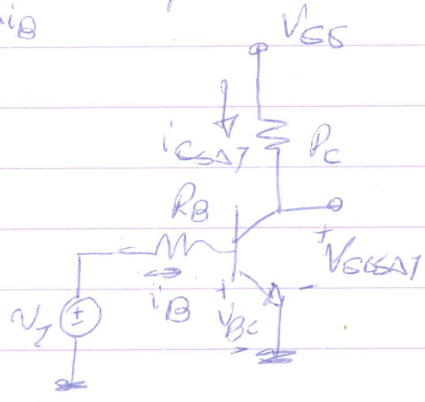 iB
VCC
iCSAT
RC
RB
+
VCESAT
iB
+
-
VBE
VI
+
-